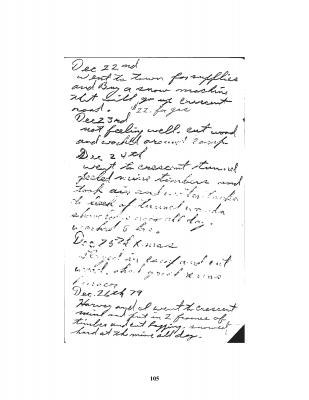 Dec 22nd
went to town for supplies
and Buy a snow machine
that will go up crescent
road. $22. for gas
Dec 23rd
not feeling well. cut wood
and worked around camp
Dec 24th
went to crescent tunnel
peeled mine timbers and
took air and water
to back of tunnel
all day.
worked 5 hrs.
Dec. 25th Xmas
Stayed in camp and cut
wood. had good xmas
Dec. 26th 79
Harvey and I went to crescent
mine and put in 2 frames of
timber and cut lagging, snowed
hard at the mine all day.
105